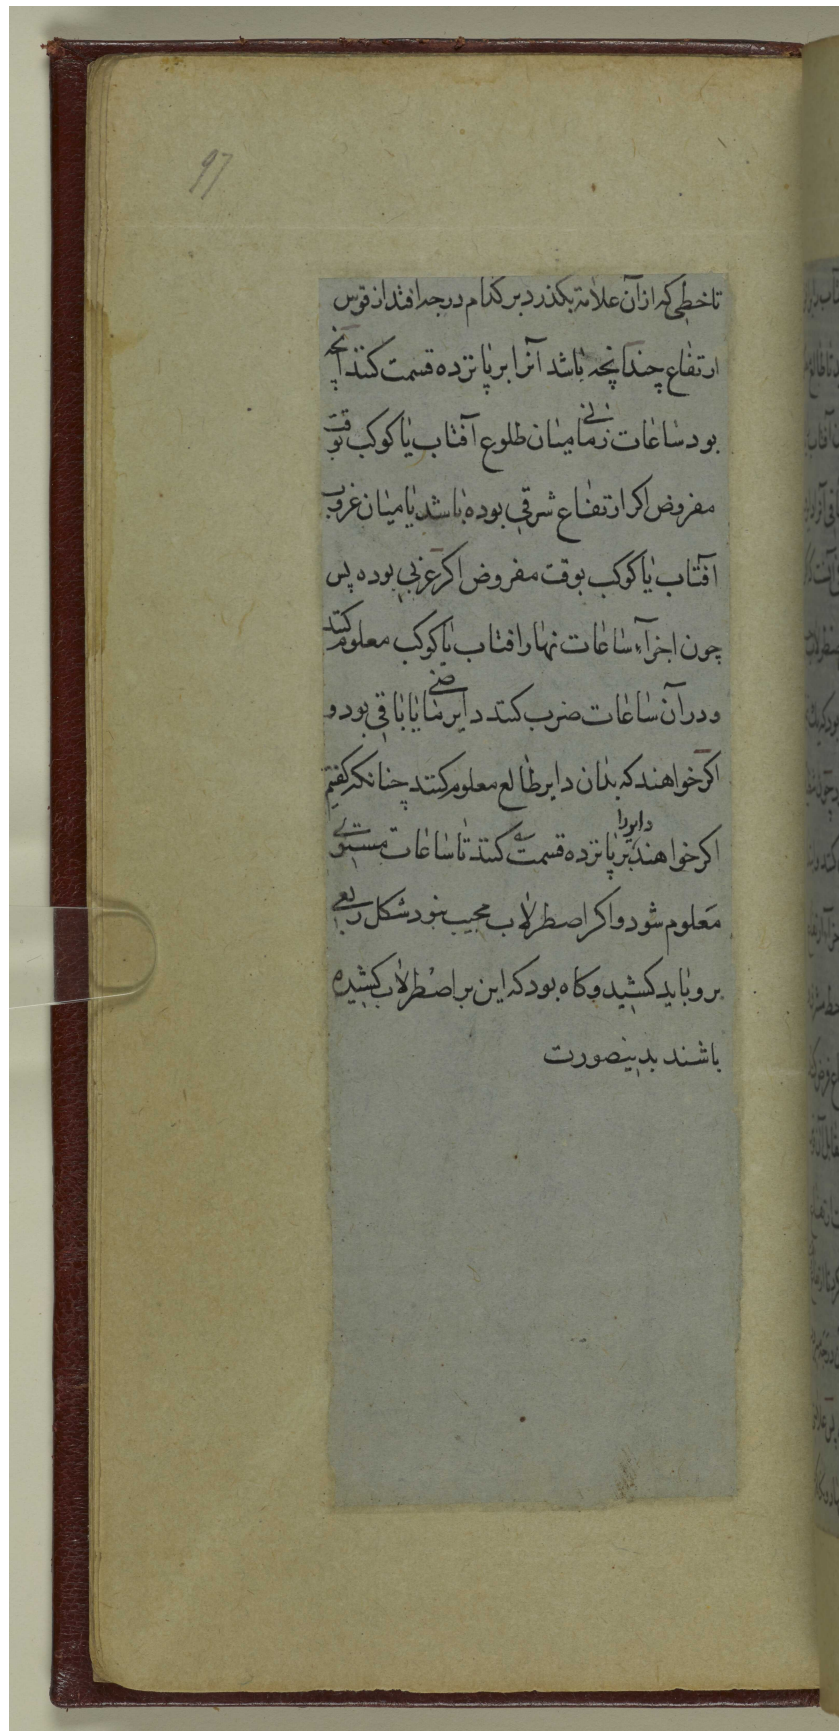 97
تا خطی که از آن علامة بکذرد بر کدام درجه افتد از قوس
ارتفاع چندانچه باشد آنرا بر پانزده قسمت کنند آنچه
بود ساعات زمانی میان طلوع آفتاب یا کوکب بوقت
مفروض اکر ارتفاع شرقی بوده باشد یا میان غروب
آفتاب یا کوکب بوقت مفروض اکر غربی بوده پس
چون اجزآء ساعات نهار افتاب یا کوکب معلوم کنند
و در آن ساعات ضرب کنند دایر ماضی یا باقی بود و
اکر خواهند که بدان دایر طالع معلوم کنند چنانکه کفتیم
اکر خواهند دایر را بر پانزده قسمت کنند تا ساعات مستوی
معلوم شود و اکر اصطرلاب مجیب نبود شکل ربعی
برو باید کشید و کاه بود که این بر اصطرلاب کشیده
باشند بدینصورت